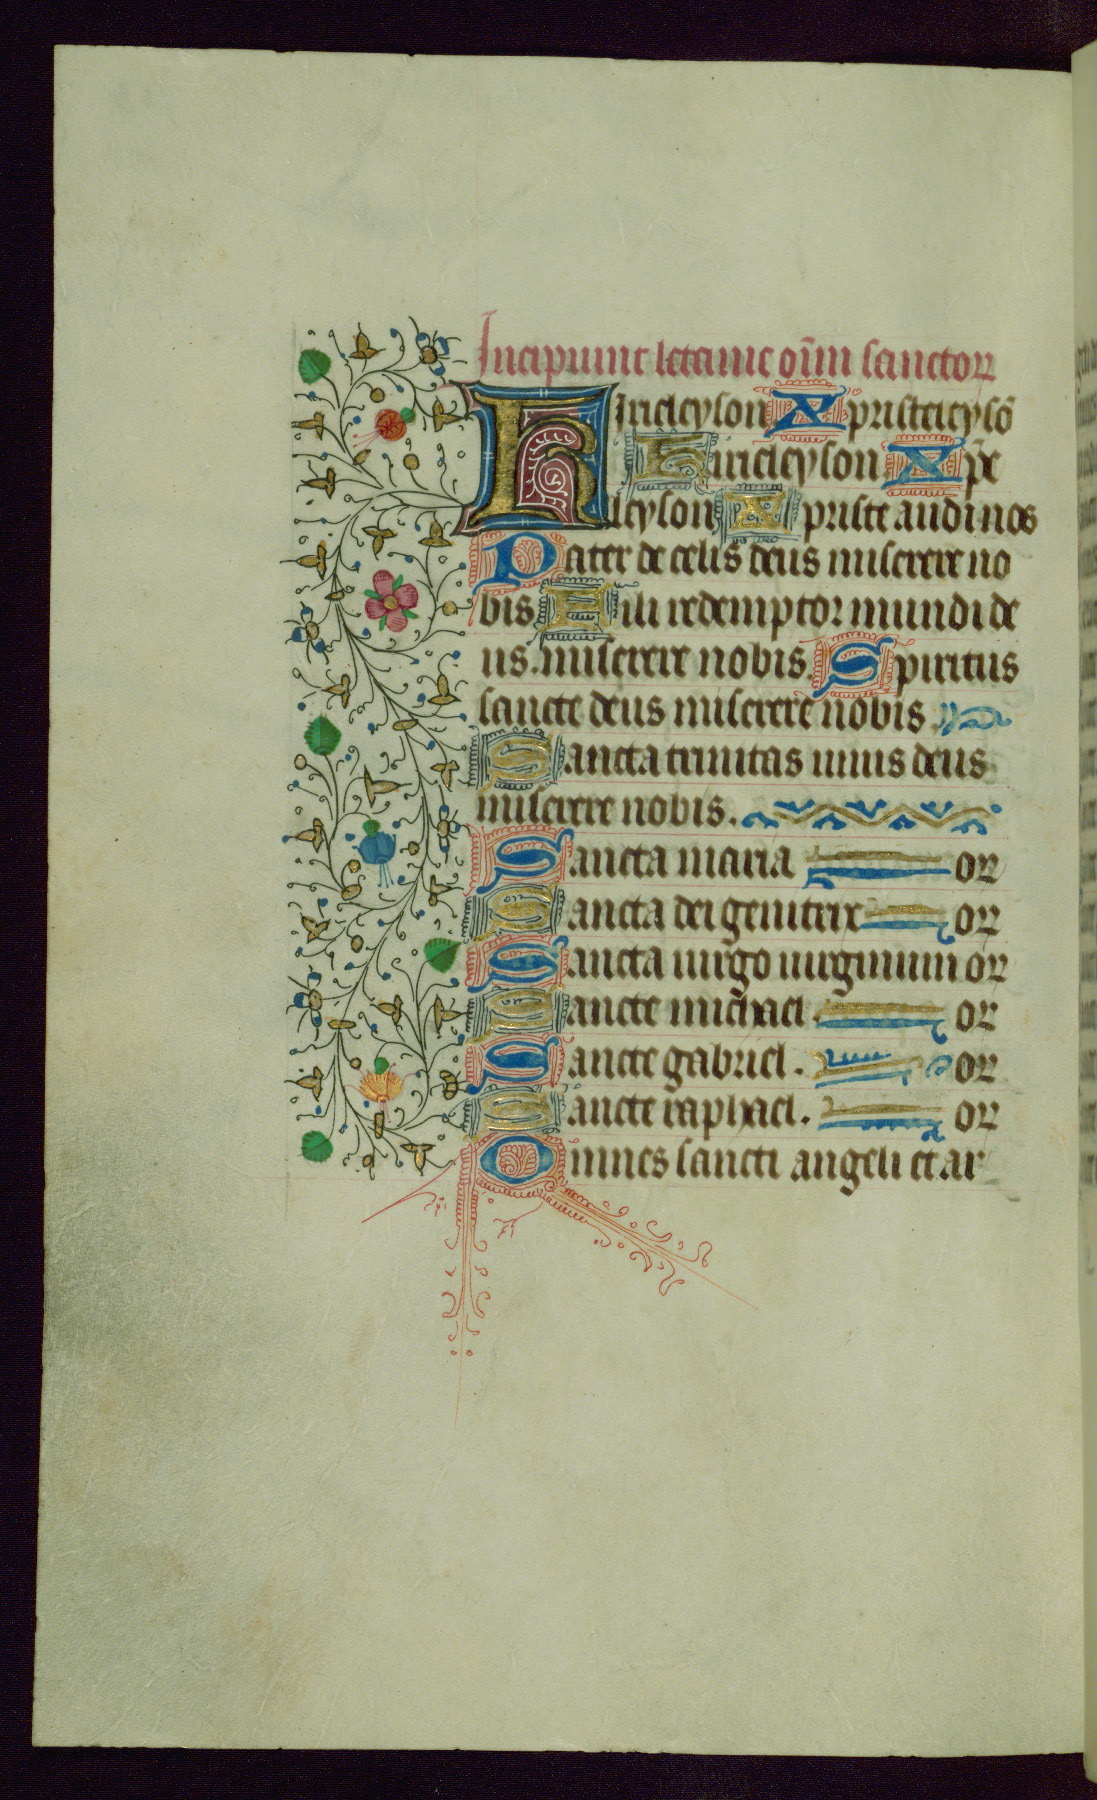 Incipiunt letanie oi͞m sanctoꝝ
Kirieleyson Xpristeleyso͞
Kirieleyson Xp͞e
eleyson Xpriste audi nos
Pater de celis deus miserere no
bis Fili redemptor mundi de
us. miserere nobis. Spiritus
sancte deus miserere nobis.
Sancta trinitas unus deus
miserere nobis.
Sancta maria oꝝ
Sancta dei genitrix oꝝ
Sancta uirgo uirginum oꝝ
Sancte michael. or
Sancte gabriel. oꝝ
Sancte raphael. oꝝ
Omnes sancti angeli et ar